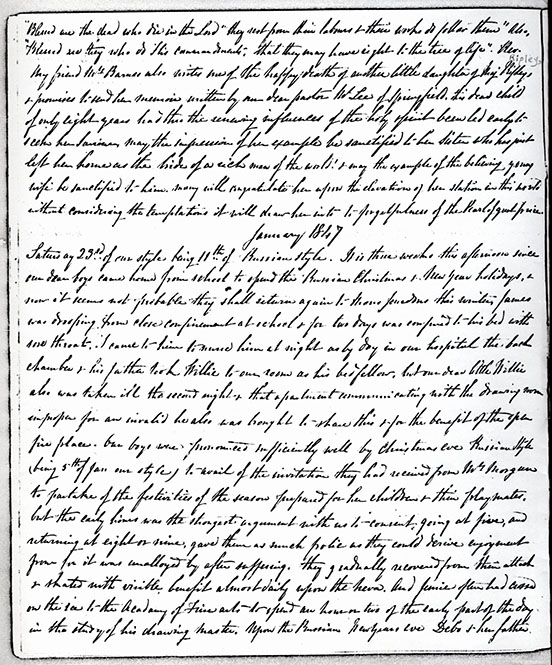 "Blessed are the dead who die in the Lord" "they rest from their labours & their works do follow them" Also,
"Blessed are they who do his commandments, that they may have right to the tree of life". Rev.
My friend Mrs Barnes also writes me of the happy death of another little daughter of Maj Ripleys
Ripley
& promises to send her memoir written by our dear pastor Mr Lee of Springfield. This dear child
of only eight years had thro the renewing influences of the holy spirit been led early to
seek her Saviour, may the impression of her example be sanctified to her sister who has just
left her home as the bride of a rich man of the world! & may the example of the believing young
wife be sanctified to him. many will congratulate her upon the elevation of her station in this world
without considering the temptations it will draw her into to forgetfulness of the Pearl of great price.
January 1847
Saturday 23rd of our style being 11th of Russian style. It is three weeks this afternoon since
our dear boys came home from school to spend the Russian Christmas & New Year holidays, &
now it seems not probable they shall return again to Mons this winter, James
was drooping from close confinement at school & for two days was confined to his bed with
sore throat. I came to him to nurse him at night as by day in our hospital the back
chamber & his father took Willie to our room as his bedfellow, but our dear little Willie
also was taken ill the second night & that apartment communicating with the drawing room
improper for an invalid he also was brought to share this & for the benefit of the open
fire place. Our boys were pronounced sufficiently well by Christmas eve Russian style
(being 5th of Jan our style) to avail of the invitation they had received from Mrs Morgan
to partake of the festivities of the season prepared for her children & their playmates.
but the early hours was the strongest argument with us to consent, going at five, and
returning at eight or nine, gave them as much frolic as they could derive enjoyment
from for it was unalloyed by after suffering. they gradually recovered from their attack
& skated with visible benefit almost daily upon the Neva. And Jemie often had crossed
on the ice to the Academy of Fine arts to spend an hour or two of the early part of the day
in the study of his drawing master. Upon the Russian New Years eve Debo & her father